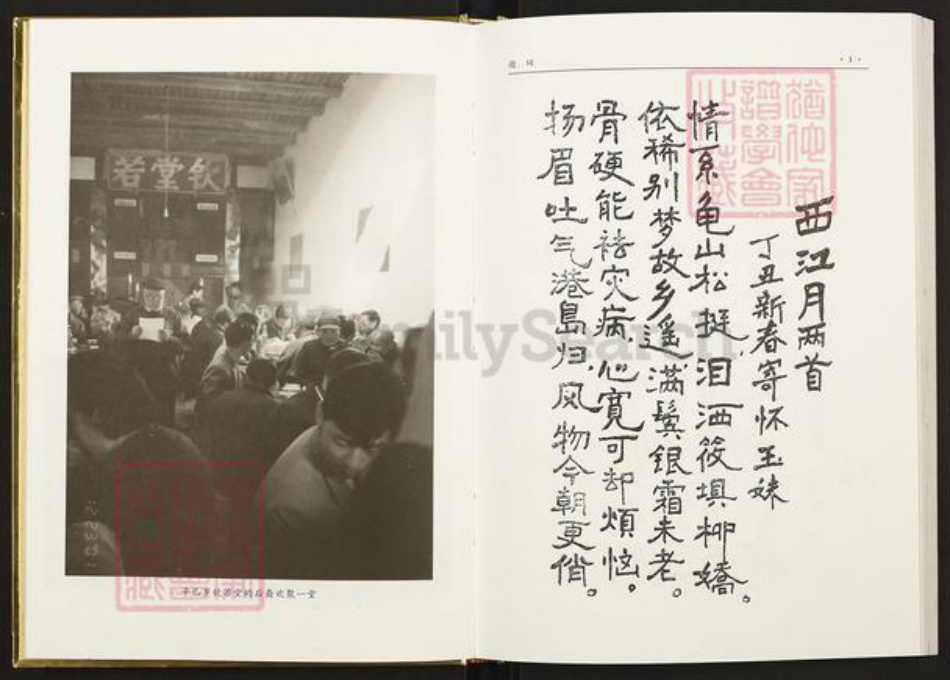 若堂欽
·1·
西江月两首
丁丑新春寄怀玉妹
情系龟山松挺泪洒筱埧柳嬌。
依稀别梦故乡遥,满鬓银霜未老。
骨硬能祛灾病,心寛可却煩恼。
扬眉吐气港島归,风物今朝更俏。
堂的后裔欢聚一堂
FamilySearch